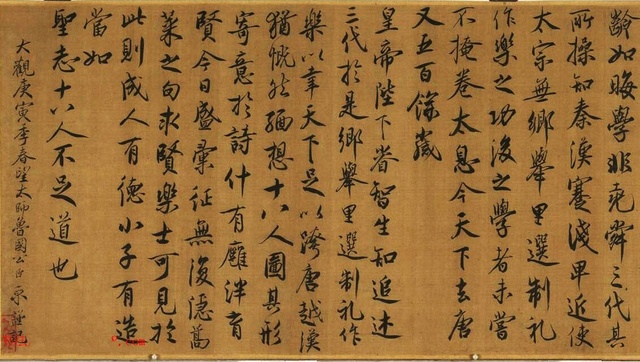 齡如晦學非堯舜三代其
所操知秦漢蹇淺卑近使
太宗無鄉舉里選制礼
作樂之功後之學者未嘗
不掩卷太息今天下去唐
又五百餘歲
皇帝陛下睿智生知追述
三代於是鄉舉里選制礼作
樂以幸天下足以跨唐越漢
猶恍然緬想十八人圖其形
寄意於詩什有廱泮育
賢今日盛彙征無復隱蒿
萊之句求賢樂士可見於
此則成人有德小子有造
當如
聖志十八人不足道也
大觀庚寅季春望太師魯國公臣京謹記